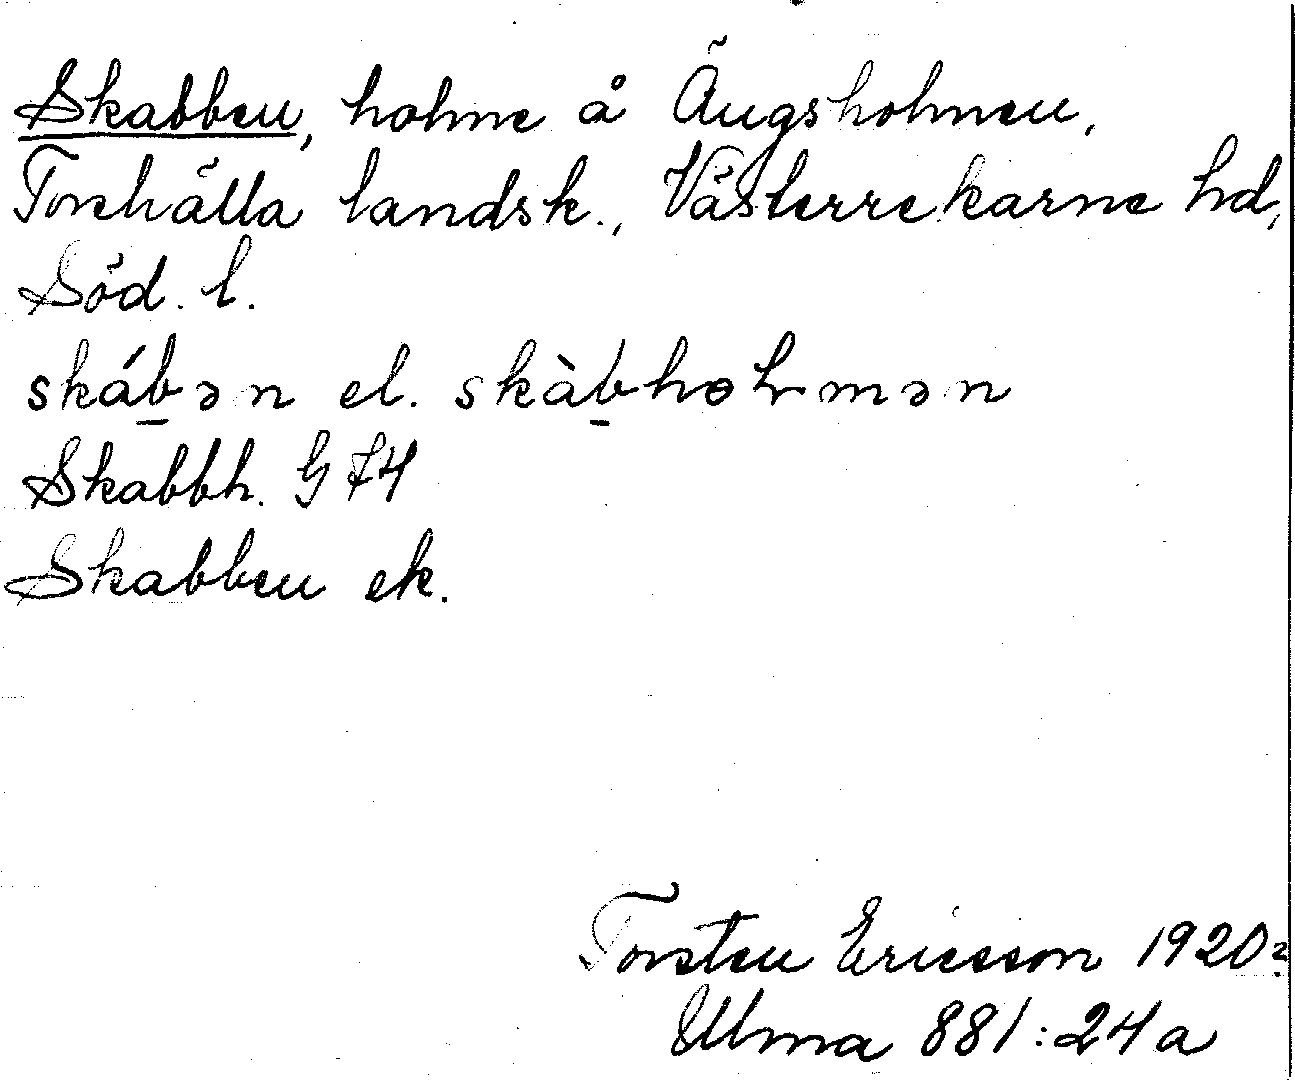 Skabben, holme å Ängsholmen,
Torshälla landsk., Västerrekarne hd,
Söd. l.
skáb̲ən el. skàb̲hɵlmən
Skabbh. G 74
Skabben ek.
Torsten Ericsson 1920
Ulma 881:24a